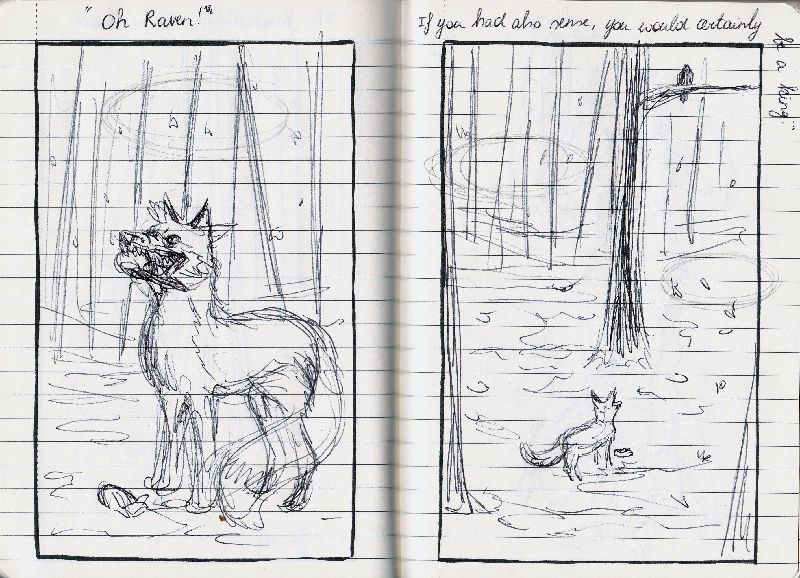 "Oh Raven!"
If you had also sense, you would certainly
be a king."